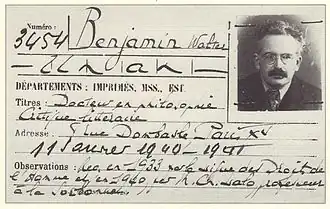 Numéro:
3454 Benjamin Walter
DÉPARTEMENTS: IMPRIMÉS, MSS., EST.
Titres: Docteur en philosophie
Critique littéraire
Adresse: rue Dombasle Paris XV
11 Janvier 1940-1941
Observations: en 1933 par la ligue des Droits de
l'homme et en 1940 par professeur
à la Sorbonne